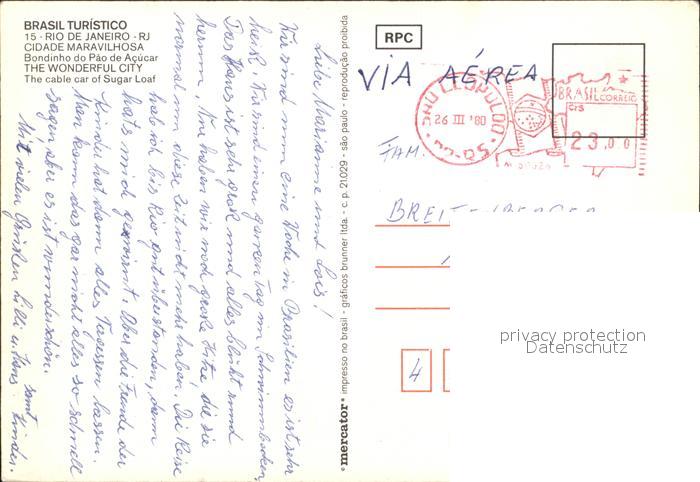 BRASIL TURÍSTICO
15 - RIO DE JANEIRO - RJ
CIDADE MARAVILHOSA
Bondinho do Pão de Açúcar
THE WONDERFUL CITY
The cable car of Sugar Loaf
Liebe Marianne und Lois!
Wir sind nun eine Woche in Brasilien es ist sehr
heiß. Wir sind einen ganzen Tag im Schwimmbecken,
Das Haus ist sehr groß und alles blüht rund
herum. Nun haben wir noch große Hitze, die sie
normal um diese Zeit nicht mehr haben. Die Reise
hab ich bis Rio gut überstanden, dann
hats mich gewürmt. Aber die Freude der
Kinder hat dann alles vergessen lassen.
Man kann das gar nicht alles so schnell
sagen aber es ist wunderschön.
Mit vielen Grüßen Lilli u. Hans samt
Kinder.
mercator • impresso no brasil - gráficos brunner ltda. - c.p. 21.029 - são paulo - reprodução proibida
RPC
VIA AÉREA
SÃO LEOPOLDO
26 III '80
RS
BRASIL CORREIO
Crs
23,00
FAM.
BREITENBERGER
4
privacy protection
Datenschutz